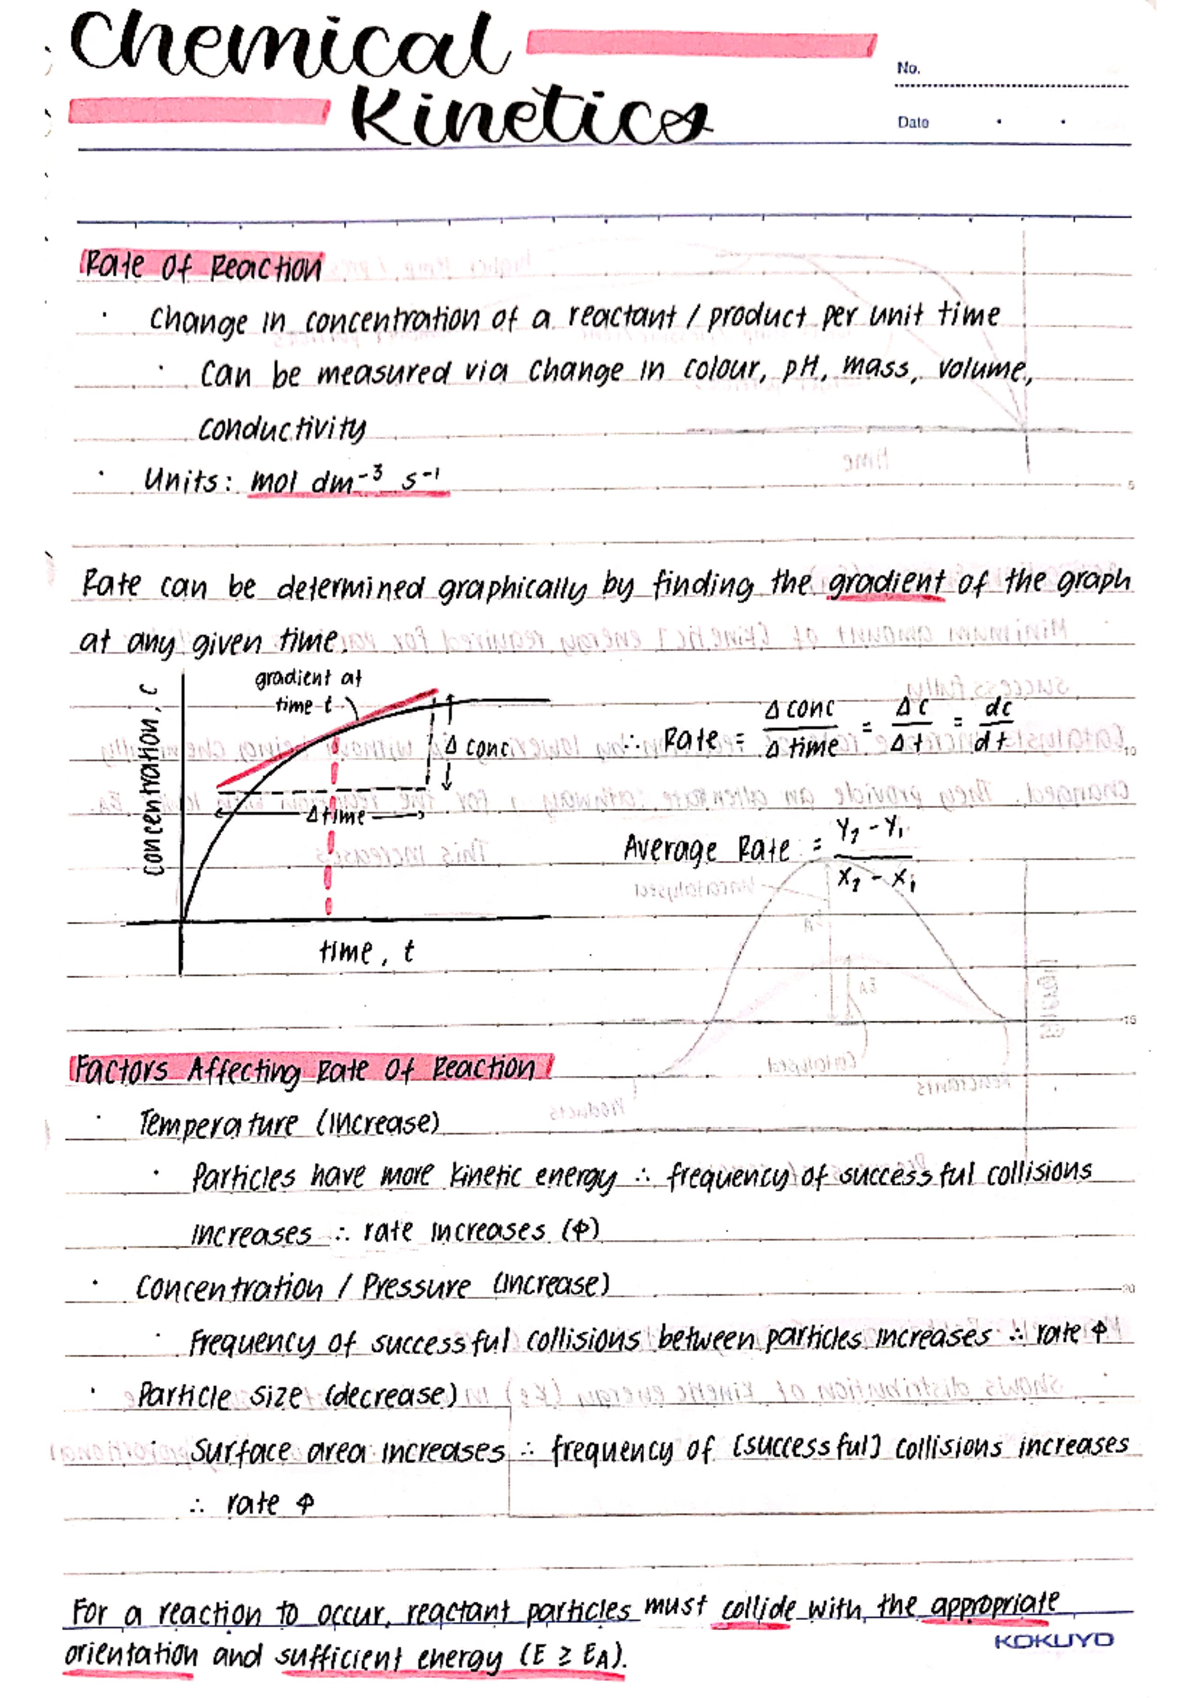 Chemical
Kinetics
No.
Date
Rate of Reaction
· Change in concentration of a reactant / product per unit time
· Can be measured via change in colour, pH, mass, volume,
conductivity
· Units: mol dm⁻³ s⁻¹
5
Rate can be determined graphically by finding the gradient of the graph
at any given time.
gradient at
time t
concentration, c
Δ conc
Δ time
time, t
∴ Rate = Δ conc / Δ time = Δc / Δt = dc / dt
10
Average Rate = Y₂ - Y₁ / X₂ - X₁
15
Factors Affecting Rate of Reaction
· Temperature (Increase)
· Particles have more kinetic energy ∴ frequency of successful collisions
increases ∴ rate increases (↑)
· Concentration / Pressure (Increase)
20
· Frequency of successful collisions between particles increases ∴ rate ↑
· Particle size (decrease)
· Surface area increases ∴ frequency of [successful] collisions increases
∴ rate ↑
For a reaction to occur, reactant particles must collide with the appropriate
orientation and sufficient energy (E ≥ EA).
KOKUYO